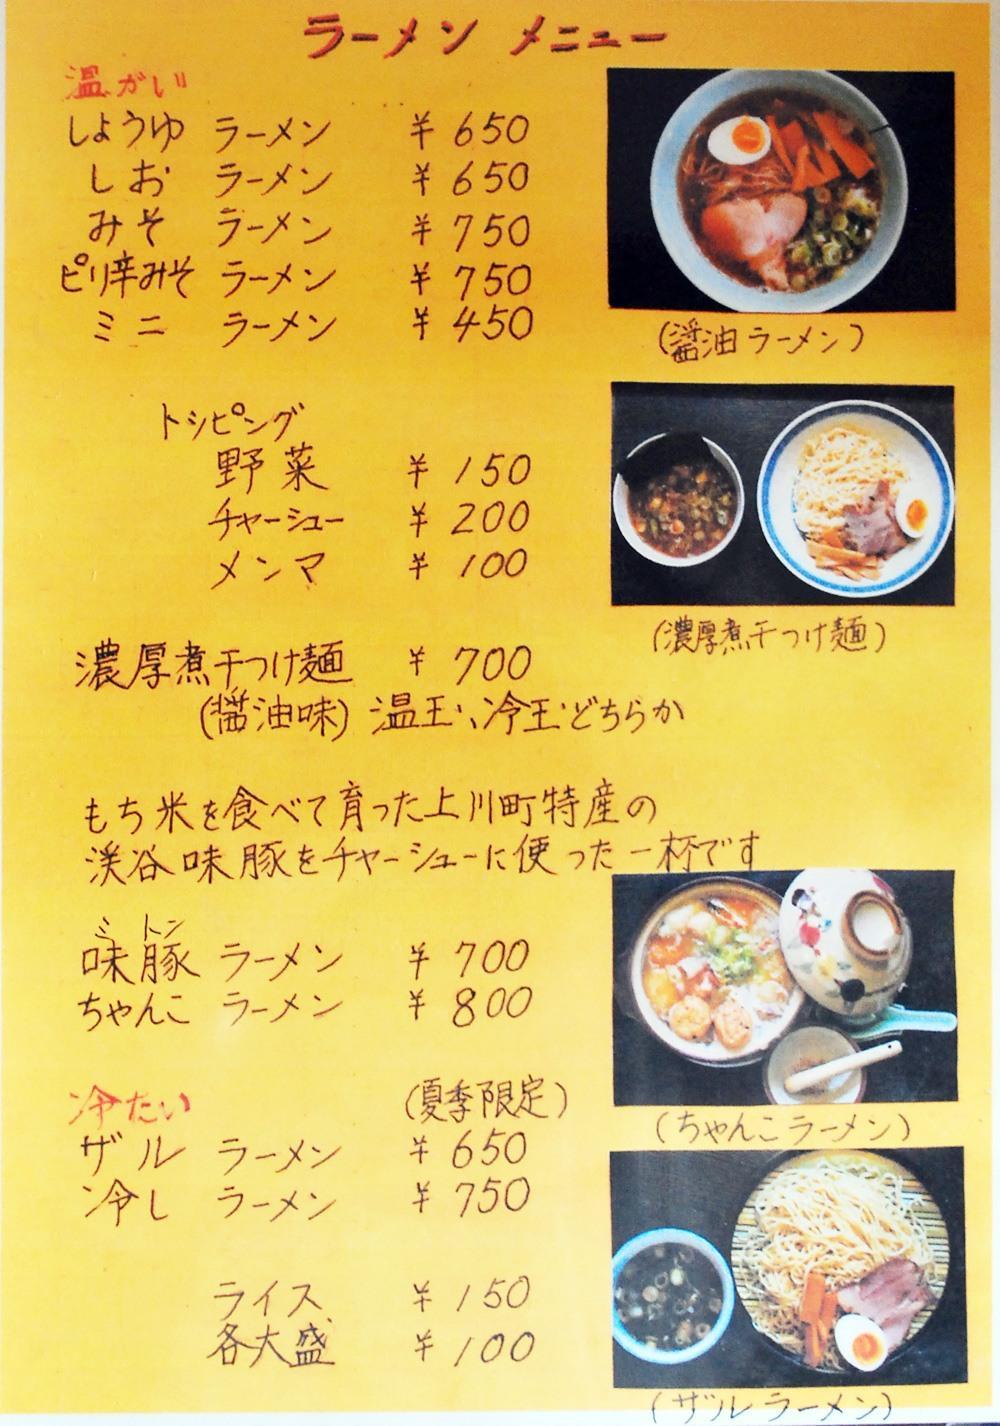 ラーメン メニュー
温がい
しょうゆ ラーメン ¥650
しお ラーメン ¥650
みそ ラーメン ¥750
ピリ辛みそ ラーメン ¥750
ミニ ラーメン ¥450
(醤油ラーメン)
トッピング
野菜 ¥150
チャーシュー ¥200
メンマ ¥100
(濃厚煮干つけ麺)
濃厚煮干つけ麺 ¥700
(醤油味) 温玉、冷玉どちらか
もち米を食べて育った上川町特産の
渓谷味豚をチャーシューに使った一杯です
ミトン
味豚 ラーメン ¥700
ちゃんこ ラーメン ¥800
(ちゃんこラーメン)
冷たい (夏季限定)
ザル ラーメン ¥650
冷し ラーメン ¥750
ライス ¥150
各大盛 ¥100
(ザルラーメン)